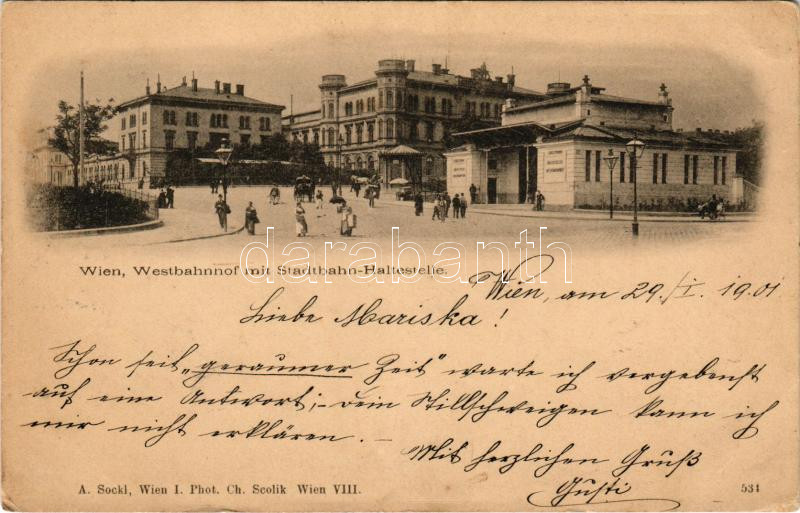 Wien, Westbahnhof mit Stadtbahn-Haltestelle.
darabanth.com
Wien, am 29./I. 1901
Liebe Mariska!
Schon seit „geraumer Zeit" warte ich vergebenst
auf eine Antwort; – Dein Stillschweigen kann ich
mir nicht erklären. –
Mit herzlichen Gruß
Gusti
A. Sockl, Wien I. Phot. Ch. Scolik Wien VIII.
534